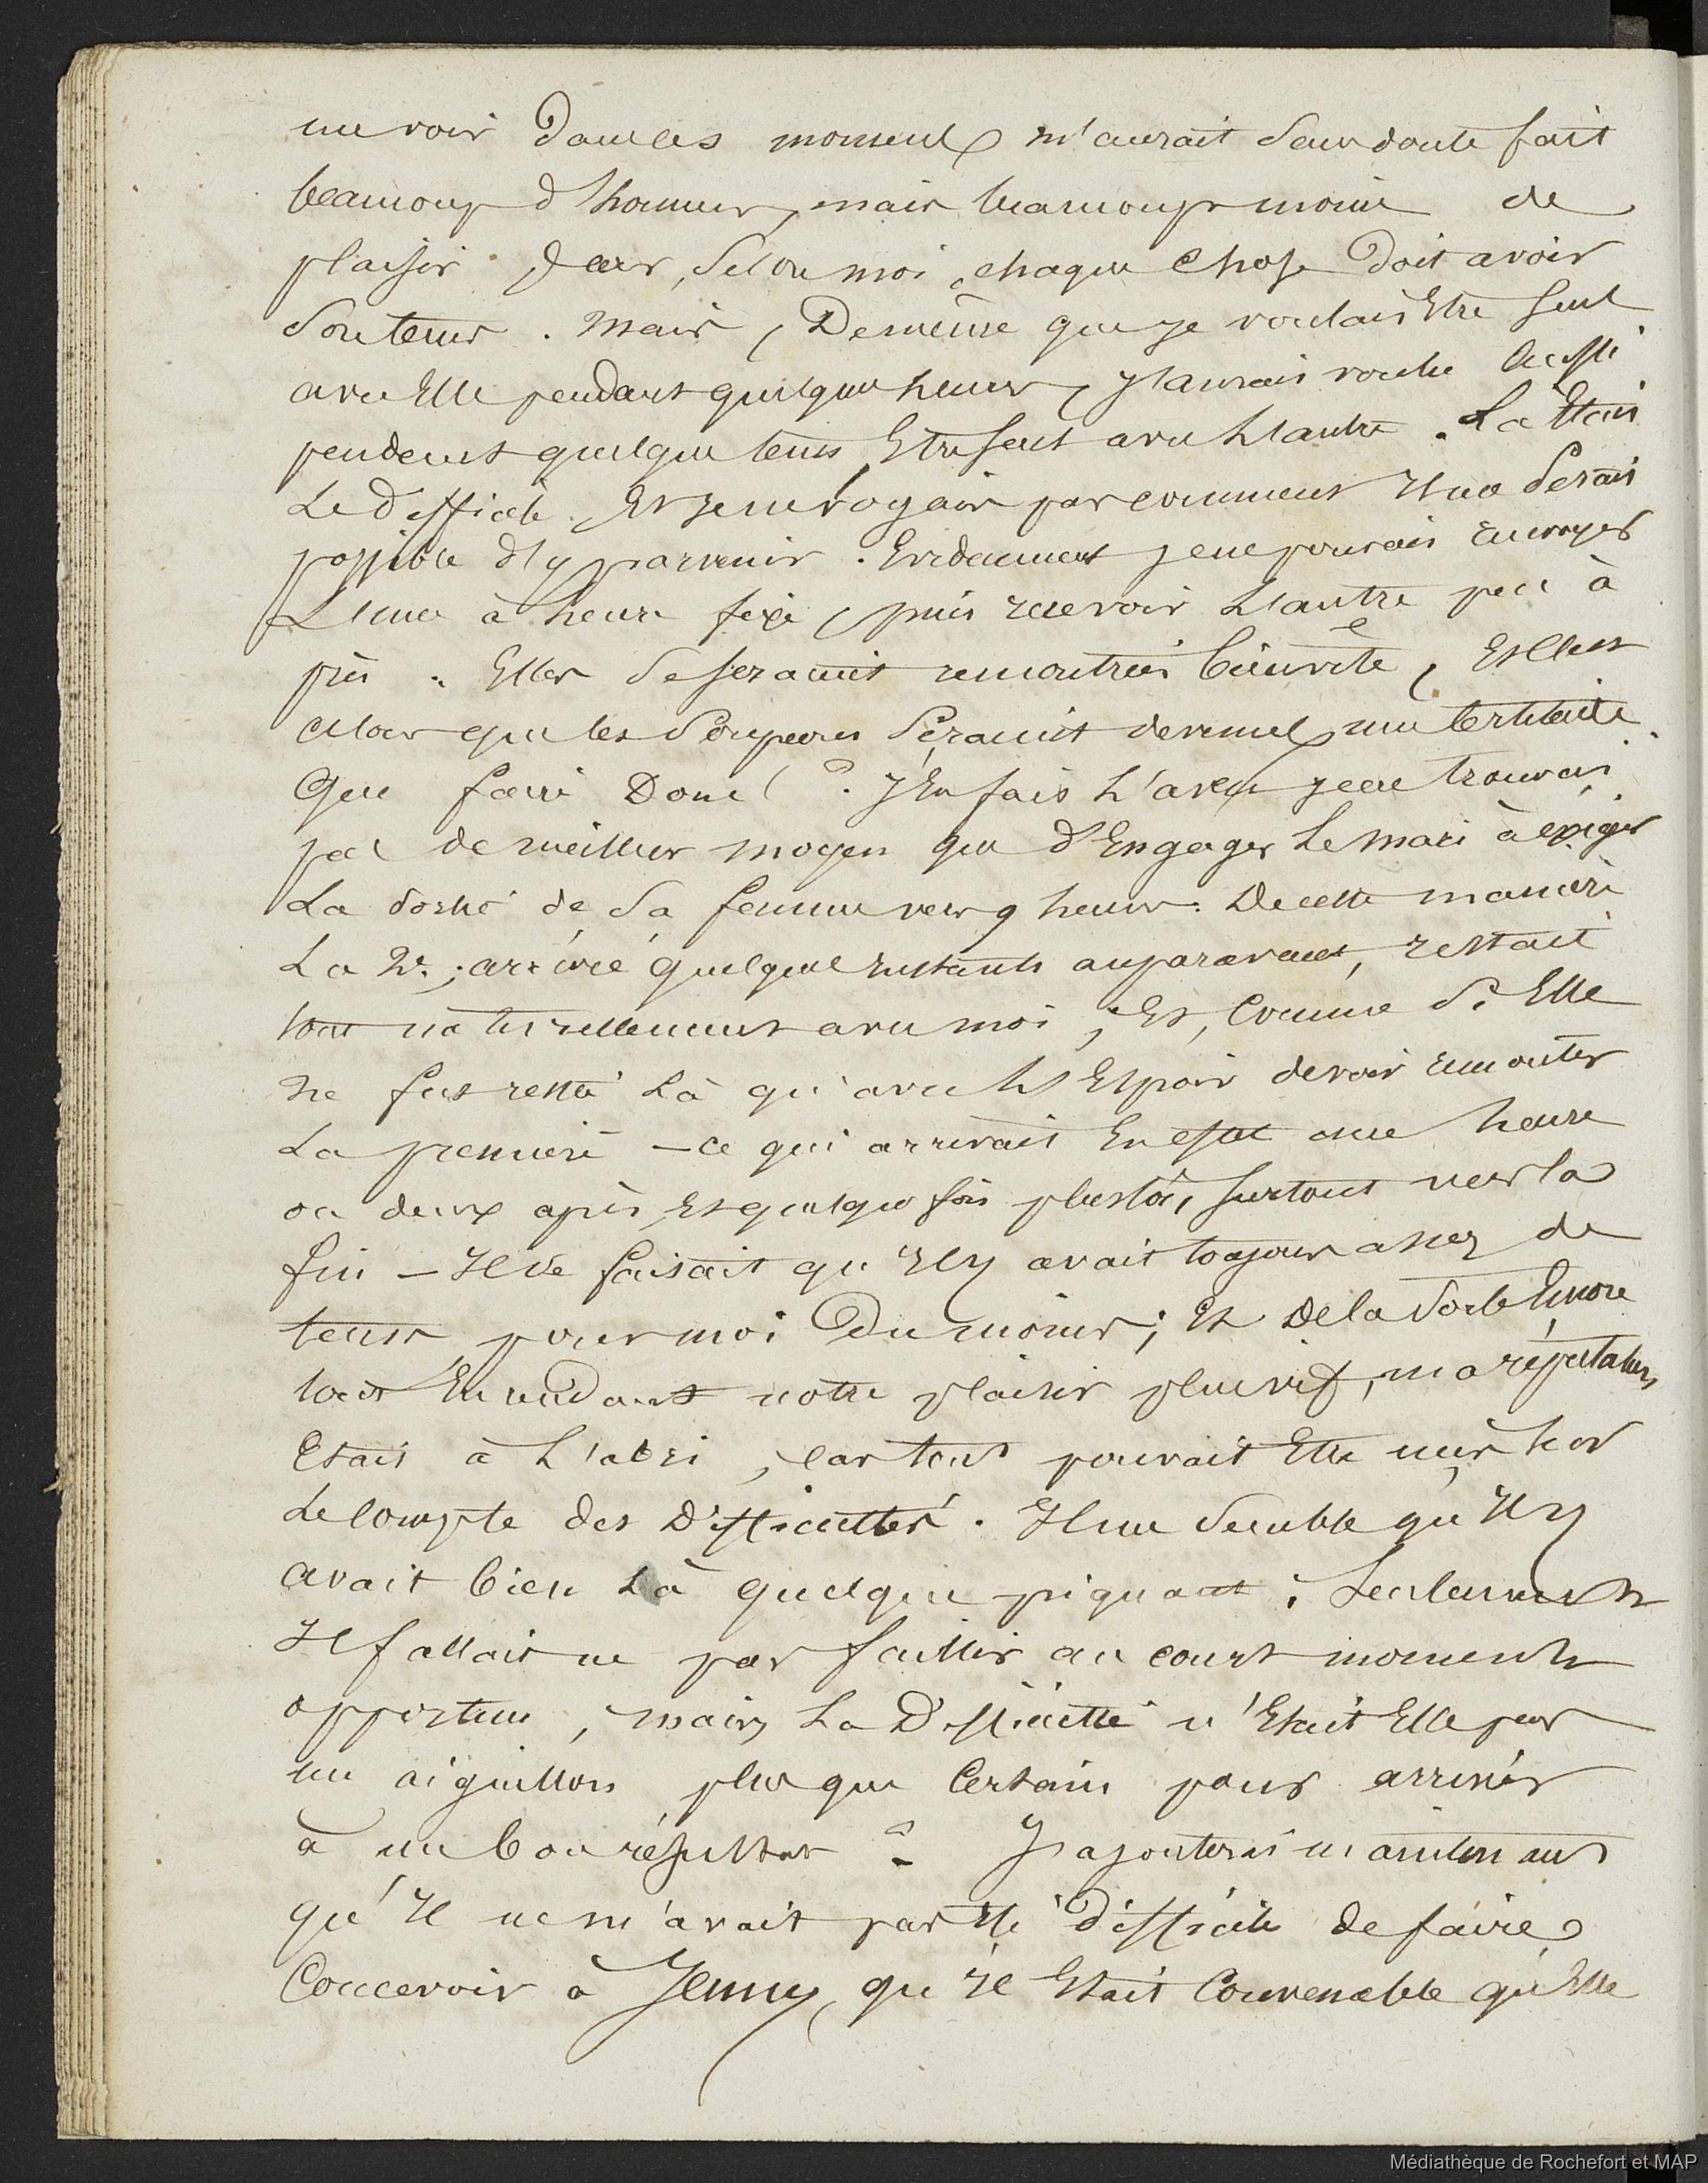 me voir dans ces moments m'aurait sans doute fait
beaucoup d'honneur, mais beaucoup moins de
plaisir, car, selon moi, chaque chose doit avoir
son tems. Mais, De même que je voulais Etre seul
avec Elle pendant quelques heures, J'aurais voulu aussi
pendant quelque tems Etre seul avec L'autre. La Etait
Le Difficile. Et Je ne voyais pas comment Il me serait
possible d'y parvenir. Evidemment je ne pouvais renvoyer
L'une à heure fixe, puis recevoir L'autre peu à
près. Elles se seraient rencontrées bien vite, Et c'est
alors que les soupçons seraient devenus une certitude.
Que faire Donc ? J'En fais L'aveu je ne trouvai
pas de meilleur moyen que d'Engager Le mari à exiger
La sortie de sa femme vers 9 heures. De cette manière
La 2e, arrivée quelques Instants auparavant, restait
tout naturellement avec moi, Et, Comme si Elle
ne fut restée Là qu'avec L'Espoir de voir remonter
La première — ce qui arrivait En effet une heure
ou deux après, Et quelque fois plustôt, surtout vers la
fin — Il se faisait qu'Il y avait toujours assez de
tems pour moi Du moins ; Et De la sorte Encore
tout En rendant notre plaisir plus vif, ma réputation
Etait à L'abri, car tout pouvait Etre mis sur
Le compte des Difficultés. Il me semble qu'Il y
avait bien Là quelque piquant. Seulement
Il fallait ne pas faillir au court moment
opportun, mais La Difficulté n'Etait Elle pas
un aiguillon plus que Certain pour arriver
à un bon résultat ? J'ajouterai maintenant
qu'Il ne m'avait pas Eté difficile de faire
Concevoir à Jenny, qu'il Etait Convenable qu'Elle
Médiathèque de Rochefort et MAP